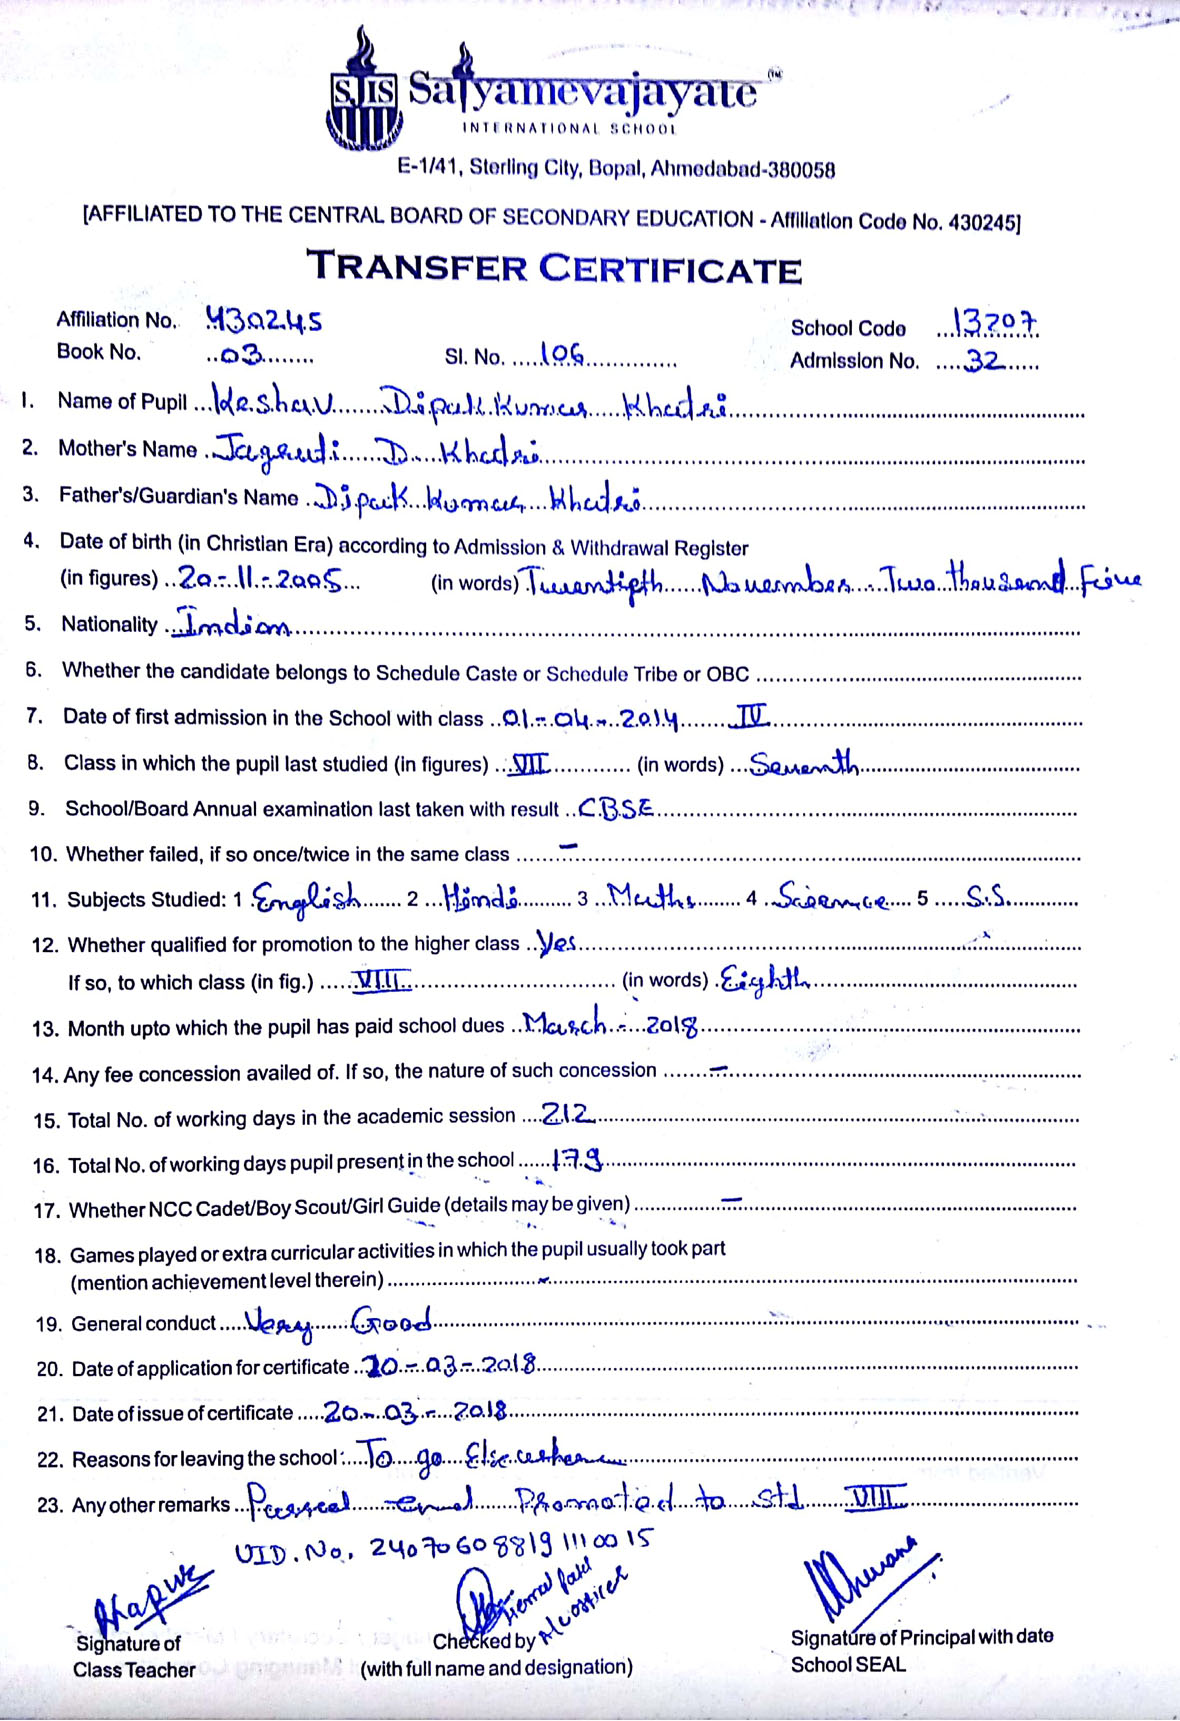 SJIS Satyamevajayate TM
INTERNATIONAL SCHOOL
E-1/41, Sterling City, Bopal, Ahmedabad-380058
[AFFILIATED TO THE CENTRAL BOARD OF SECONDARY EDUCATION - Affiliation Code No. 430245]
TRANSFER CERTIFICATE
Affiliation No. 430245 School Code 13207
Book No. 03 Sl. No. 106 Admission No. 32
1. Name of Pupil Keshav Dipak Kumar Khatri
2. Mother's Name Jagruti D. Khatri
3. Father's/Guardian's Name Dipak Kumar Khatri
4. Date of birth (in Christian Era) according to Admission & Withdrawal Register
(in figures) 20-11-2005 (in words) Twentipth November Two thousand Five
5. Nationality Indian
6. Whether the candidate belongs to Schedule Caste or Schedule Tribe or OBC
7. Date of first admission in the School with class 01-04-2014 IV
8. Class in which the pupil last studied (in figures) VII (in words) Seventh
9. School/Board Annual examination last taken with result CBSE
10. Whether failed, if so once/twice in the same class -
11. Subjects Studied: 1 English 2 Hindi 3 Maths 4 Science 5 S.S.
12. Whether qualified for promotion to the higher class Yes
If so, to which class (in fig.) VIII (in words) Eighth
13. Month upto which the pupil has paid school dues March - 2018
14. Any fee concession availed of. If so, the nature of such concession -
15. Total No. of working days in the academic session 212
16. Total No. of working days pupil present in the school 179
17. Whether NCC Cadet/Boy Scout/Girl Guide (details may be given) -
18. Games played or extra curricular activities in which the pupil usually took part
(mention achievement level therein) -
19. General conduct Very Good
20. Date of application for certificate 20-03-2018
21. Date of issue of certificate 20-03-2018
22. Reasons for leaving the school: To go Elsewhere
23. Any other remarks Passed and Promoted to std VIII
UID. No. 240706088191110015
Signature of Checked by Signature of Principal with date
Class Teacher (with full name and designation) School SEAL